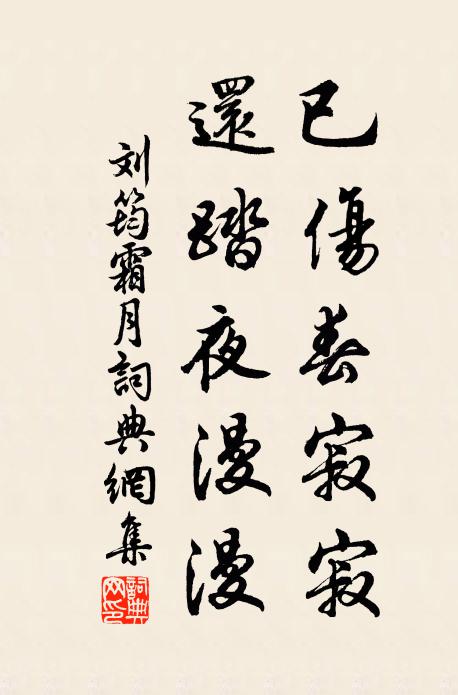 已傷春寂寂
還踏夜漫漫
刘筠霜月詞典網集
詞典
网印